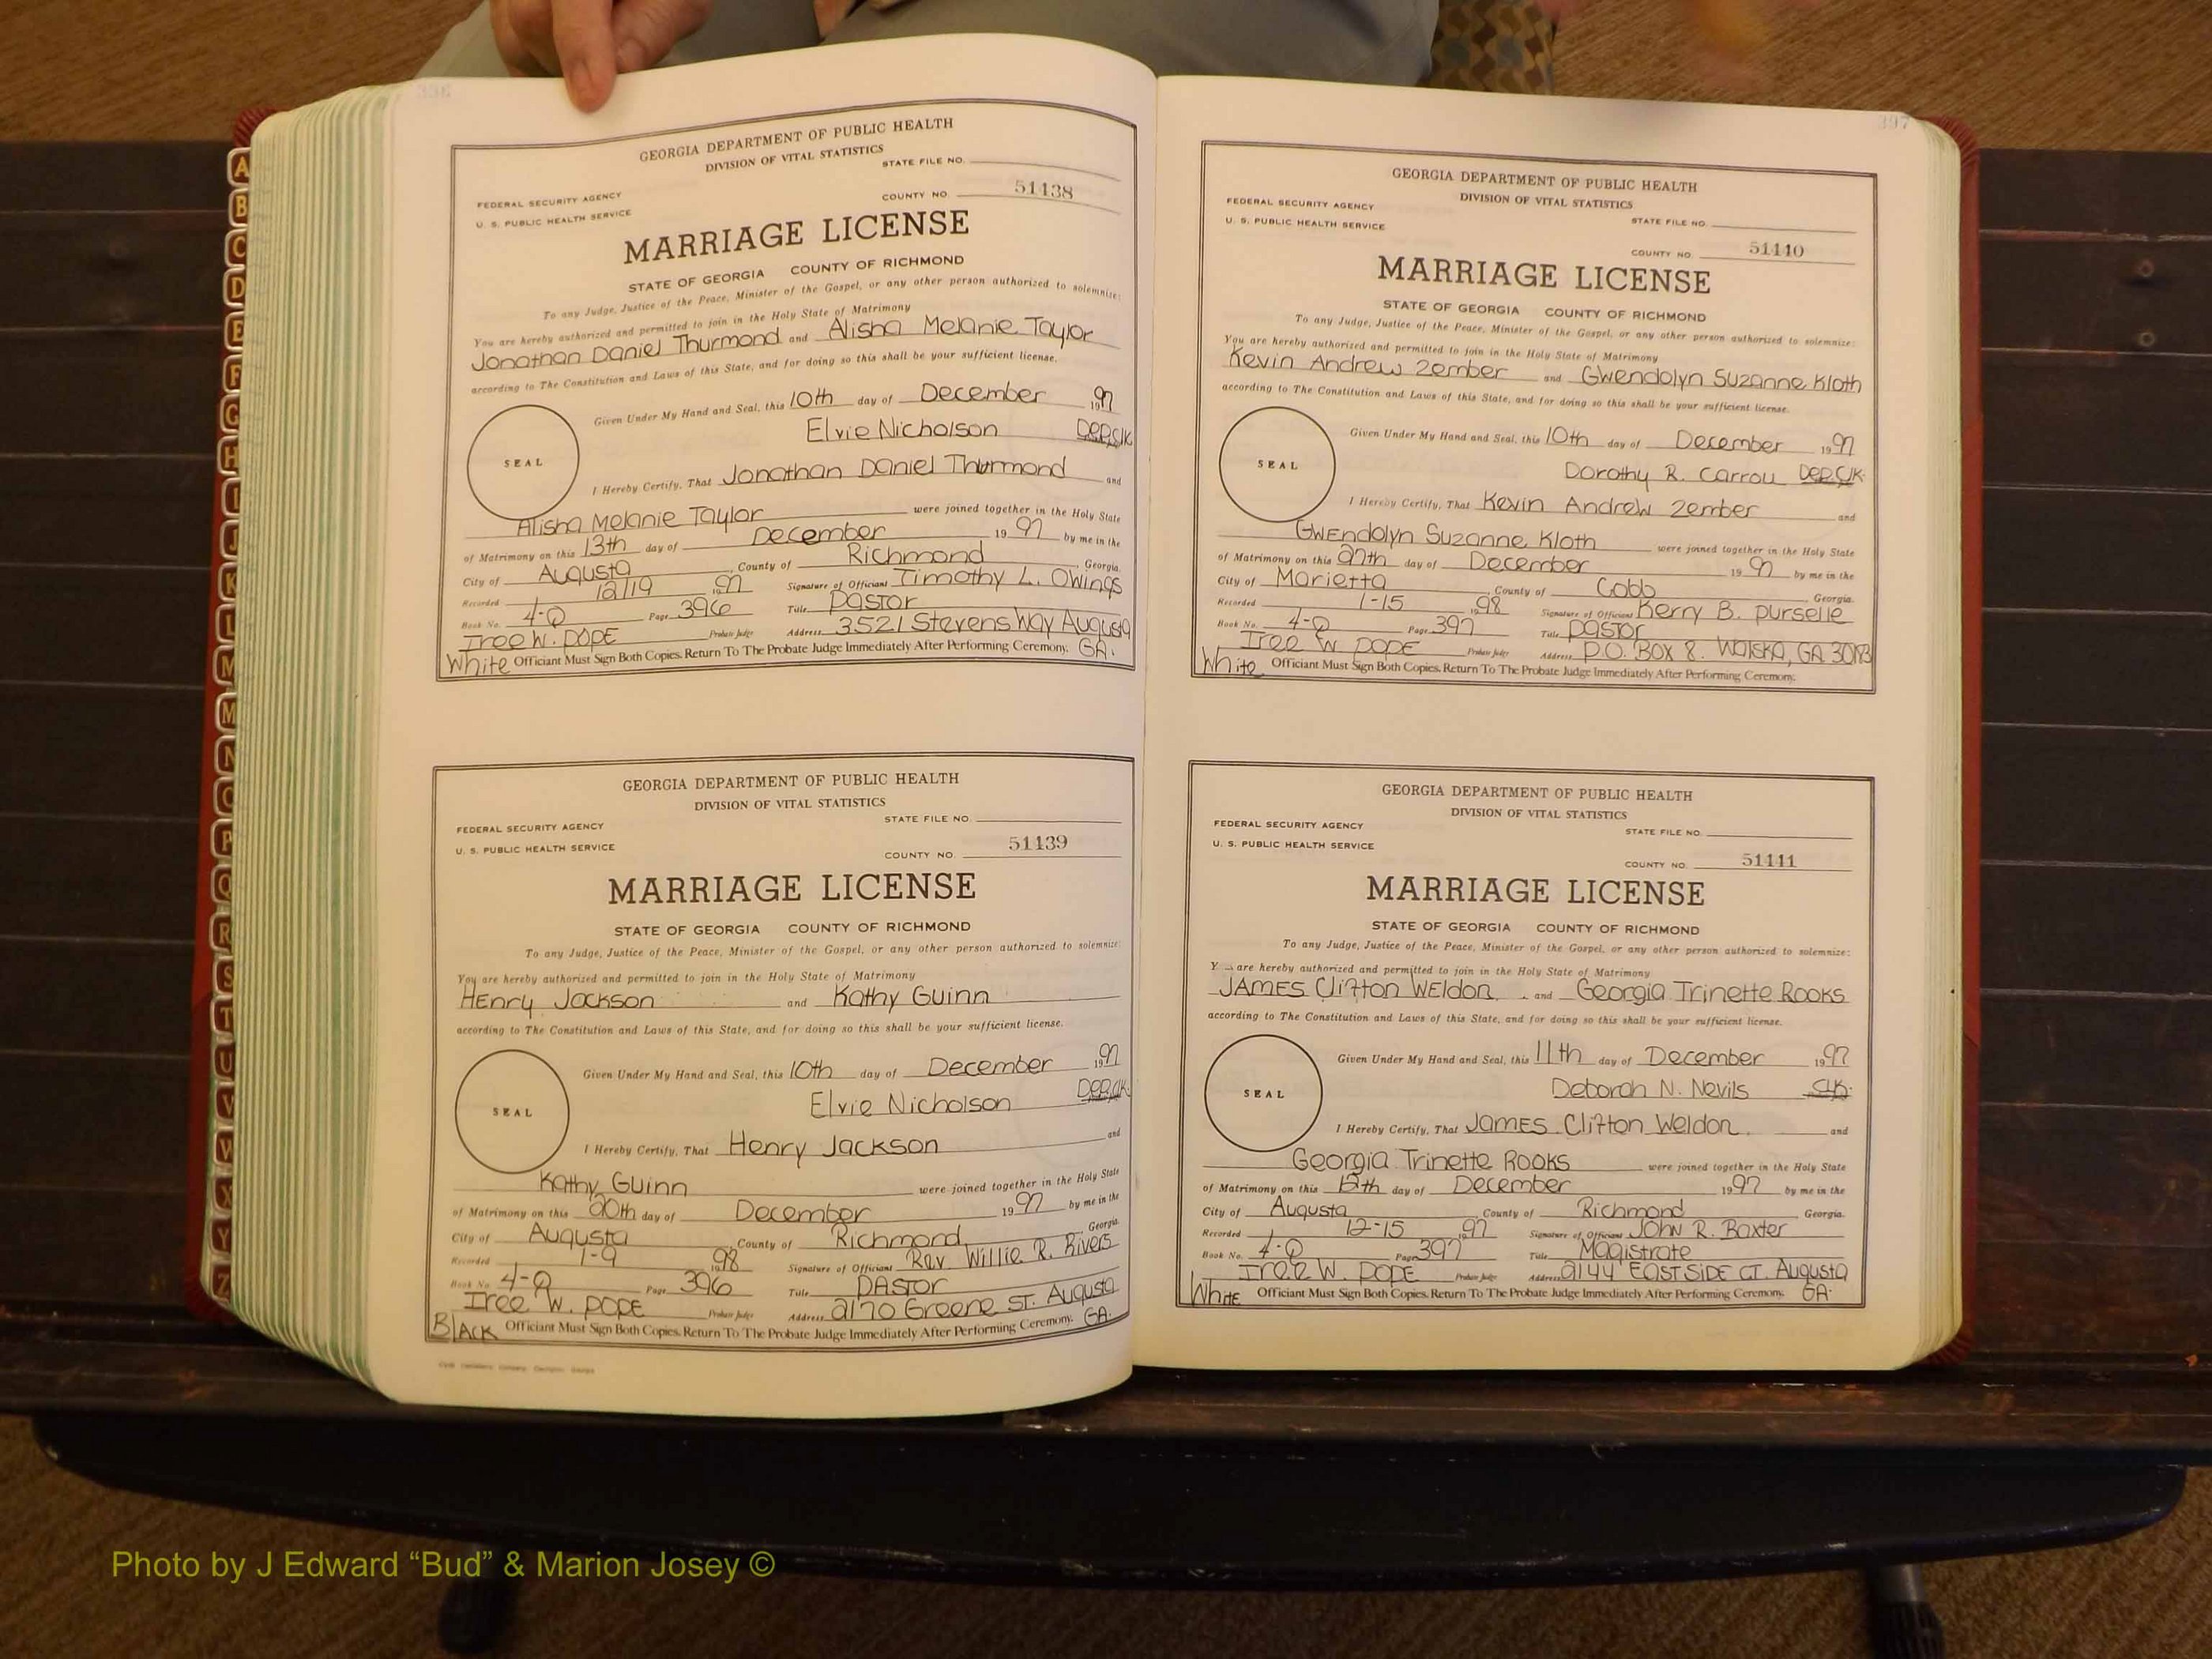 396
GEORGIA DEPARTMENT OF PUBLIC HEALTH
DIVISION OF VITAL STATISTICS
STATE FILE NO.
FEDERAL SECURITY AGENCY
COUNTY NO. 51438
U. S. PUBLIC HEALTH SERVICE
MARRIAGE LICENSE
STATE OF GEORGIA COUNTY OF RICHMOND
To any Judge, Justice of the Peace, Minister of the Gospel, or any other person authorized to solemnize:
You are hereby authorized and permitted to join in the Holy State of Matrimony
Jonathan Daniel Thurmond and Alisha Melanie Taylor
according to The Constitution and Laws of this State, and for doing so this shall be your sufficient license.
Given Under My Hand and Seal, this 10th day of December 1997
Elvie Nicholson Dep.Clk
SEAL
I Hereby Certify, That Jonathan Daniel Thurmond and
Alisha Melanie Taylor were joined together in the Holy State
of Matrimony on this 13th day of December 1997 by me in the
City of Augusta, County of Richmond, Georgia.
Recorded 12/19 1997 Signature of Officiant Timothy L. Owings
Book No. 4-Q Page 396 Title Pastor
Iree W. Pope Probate Judge Address 3521 Stevens Way Augusta
White Officiant Must Sign Both Copies. Return To The Probate Judge Immediately After Performing Ceremony. GA.
GEORGIA DEPARTMENT OF PUBLIC HEALTH
DIVISION OF VITAL STATISTICS
STATE FILE NO.
FEDERAL SECURITY AGENCY
COUNTY NO. 51439
U. S. PUBLIC HEALTH SERVICE
MARRIAGE LICENSE
STATE OF GEORGIA COUNTY OF RICHMOND
To any Judge, Justice of the Peace, Minister of the Gospel, or any other person authorized to solemnize:
You are hereby authorized and permitted to join in the Holy State of Matrimony
Henry Jackson and Kathy Guinn
according to The Constitution and Laws of this State, and for doing so this shall be your sufficient license.
Given Under My Hand and Seal, this 10th day of December 1997
Elvie Nicholson Dep.Clk.
SEAL
I Hereby Certify, That Henry Jackson and
Kathy Guinn were joined together in the Holy State
of Matrimony on this 20th day of December 1997 by me in the
City of Augusta, County of Richmond, Georgia.
Recorded 1-9 1998 Signature of Officiant Rev Willie R. Rivers
Book No. 4-Q Page 396 Title Pastor
Iree W. Pope Probate Judge Address 2170 Greene St. Augusta
Black Officiant Must Sign Both Copies. Return To The Probate Judge Immediately After Performing Ceremony. GA.
397
GEORGIA DEPARTMENT OF PUBLIC HEALTH
DIVISION OF VITAL STATISTICS
FEDERAL SECURITY AGENCY
STATE FILE NO.
U. S. PUBLIC HEALTH SERVICE
COUNTY NO. 51440
MARRIAGE LICENSE
STATE OF GEORGIA COUNTY OF RICHMOND
To any Judge, Justice of the Peace, Minister of the Gospel, or any other person authorized to solemnize:
You are hereby authorized and permitted to join in the Holy State of Matrimony
Kevin Andrew Zember and Gwendolyn Suzanne Kloth
according to The Constitution and Laws of this State, and for doing so this shall be your sufficient license.
Given Under My Hand and Seal, this 10th day of December 1997
Dorothy R. Carrou Dep.Clk.
SEAL
I Hereby Certify, That Kevin Andrew Zember and
Gwendolyn Suzanne Kloth were joined together in the Holy State
of Matrimony on this 27th day of December 1997 by me in the
City of Marietta, County of Cobb Georgia.
Recorded 1-15 1998 Signature of Officiant Kerry B. Purselle
Book No. 4-Q Page 397 Title Pastor
Iree W Pope Probate Judge Address P.O. Box 8. GA 30183
White Officiant Must Sign Both Copies. Return To The Probate Judge Immediately After Performing Ceremony.
GEORGIA DEPARTMENT OF PUBLIC HEALTH
DIVISION OF VITAL STATISTICS
FEDERAL SECURITY AGENCY
STATE FILE NO.
U. S. PUBLIC HEALTH SERVICE
COUNTY NO. 51441
MARRIAGE LICENSE
STATE OF GEORGIA COUNTY OF RICHMOND
To any Judge, Justice of the Peace, Minister of the Gospel, or any other person authorized to solemnize:
Y are hereby authorized and permitted to join in the Holy State of Matrimony
James Clifton Weldon and Georgia Trinette Rooks
according to The Constitution and Laws of this State, and for doing so this shall be your sufficient license.
Given Under My Hand and Seal, this 11th day of December 1997
Deborah N. Nevils Clk.
SEAL
I Hereby Certify, That James Clifton Weldon and
Georgia Trinette Rooks were joined together in the Holy State
of Matrimony on this 12th day of December 1997 by me in the
City of Augusta, County of Richmond, Georgia.
Recorded 12-15 1997 Signature of Officiant John R. Baxter
Book No. 4-Q Page 397 Title Magistrate
Iree W. Pope Probate Judge Address 2144 Eastside Ct. Augusta
White Officiant Must Sign Both Copies. Return To The Probate Judge Immediately After Performing Ceremony. GA.
A
B
C
D
E
F
G
H
I
J
K
L
M
M
N
O
P
Q
R
S
T
U
V
W
X
Y
Z
Photo by J Edward “Bud” & Marion Josey ©